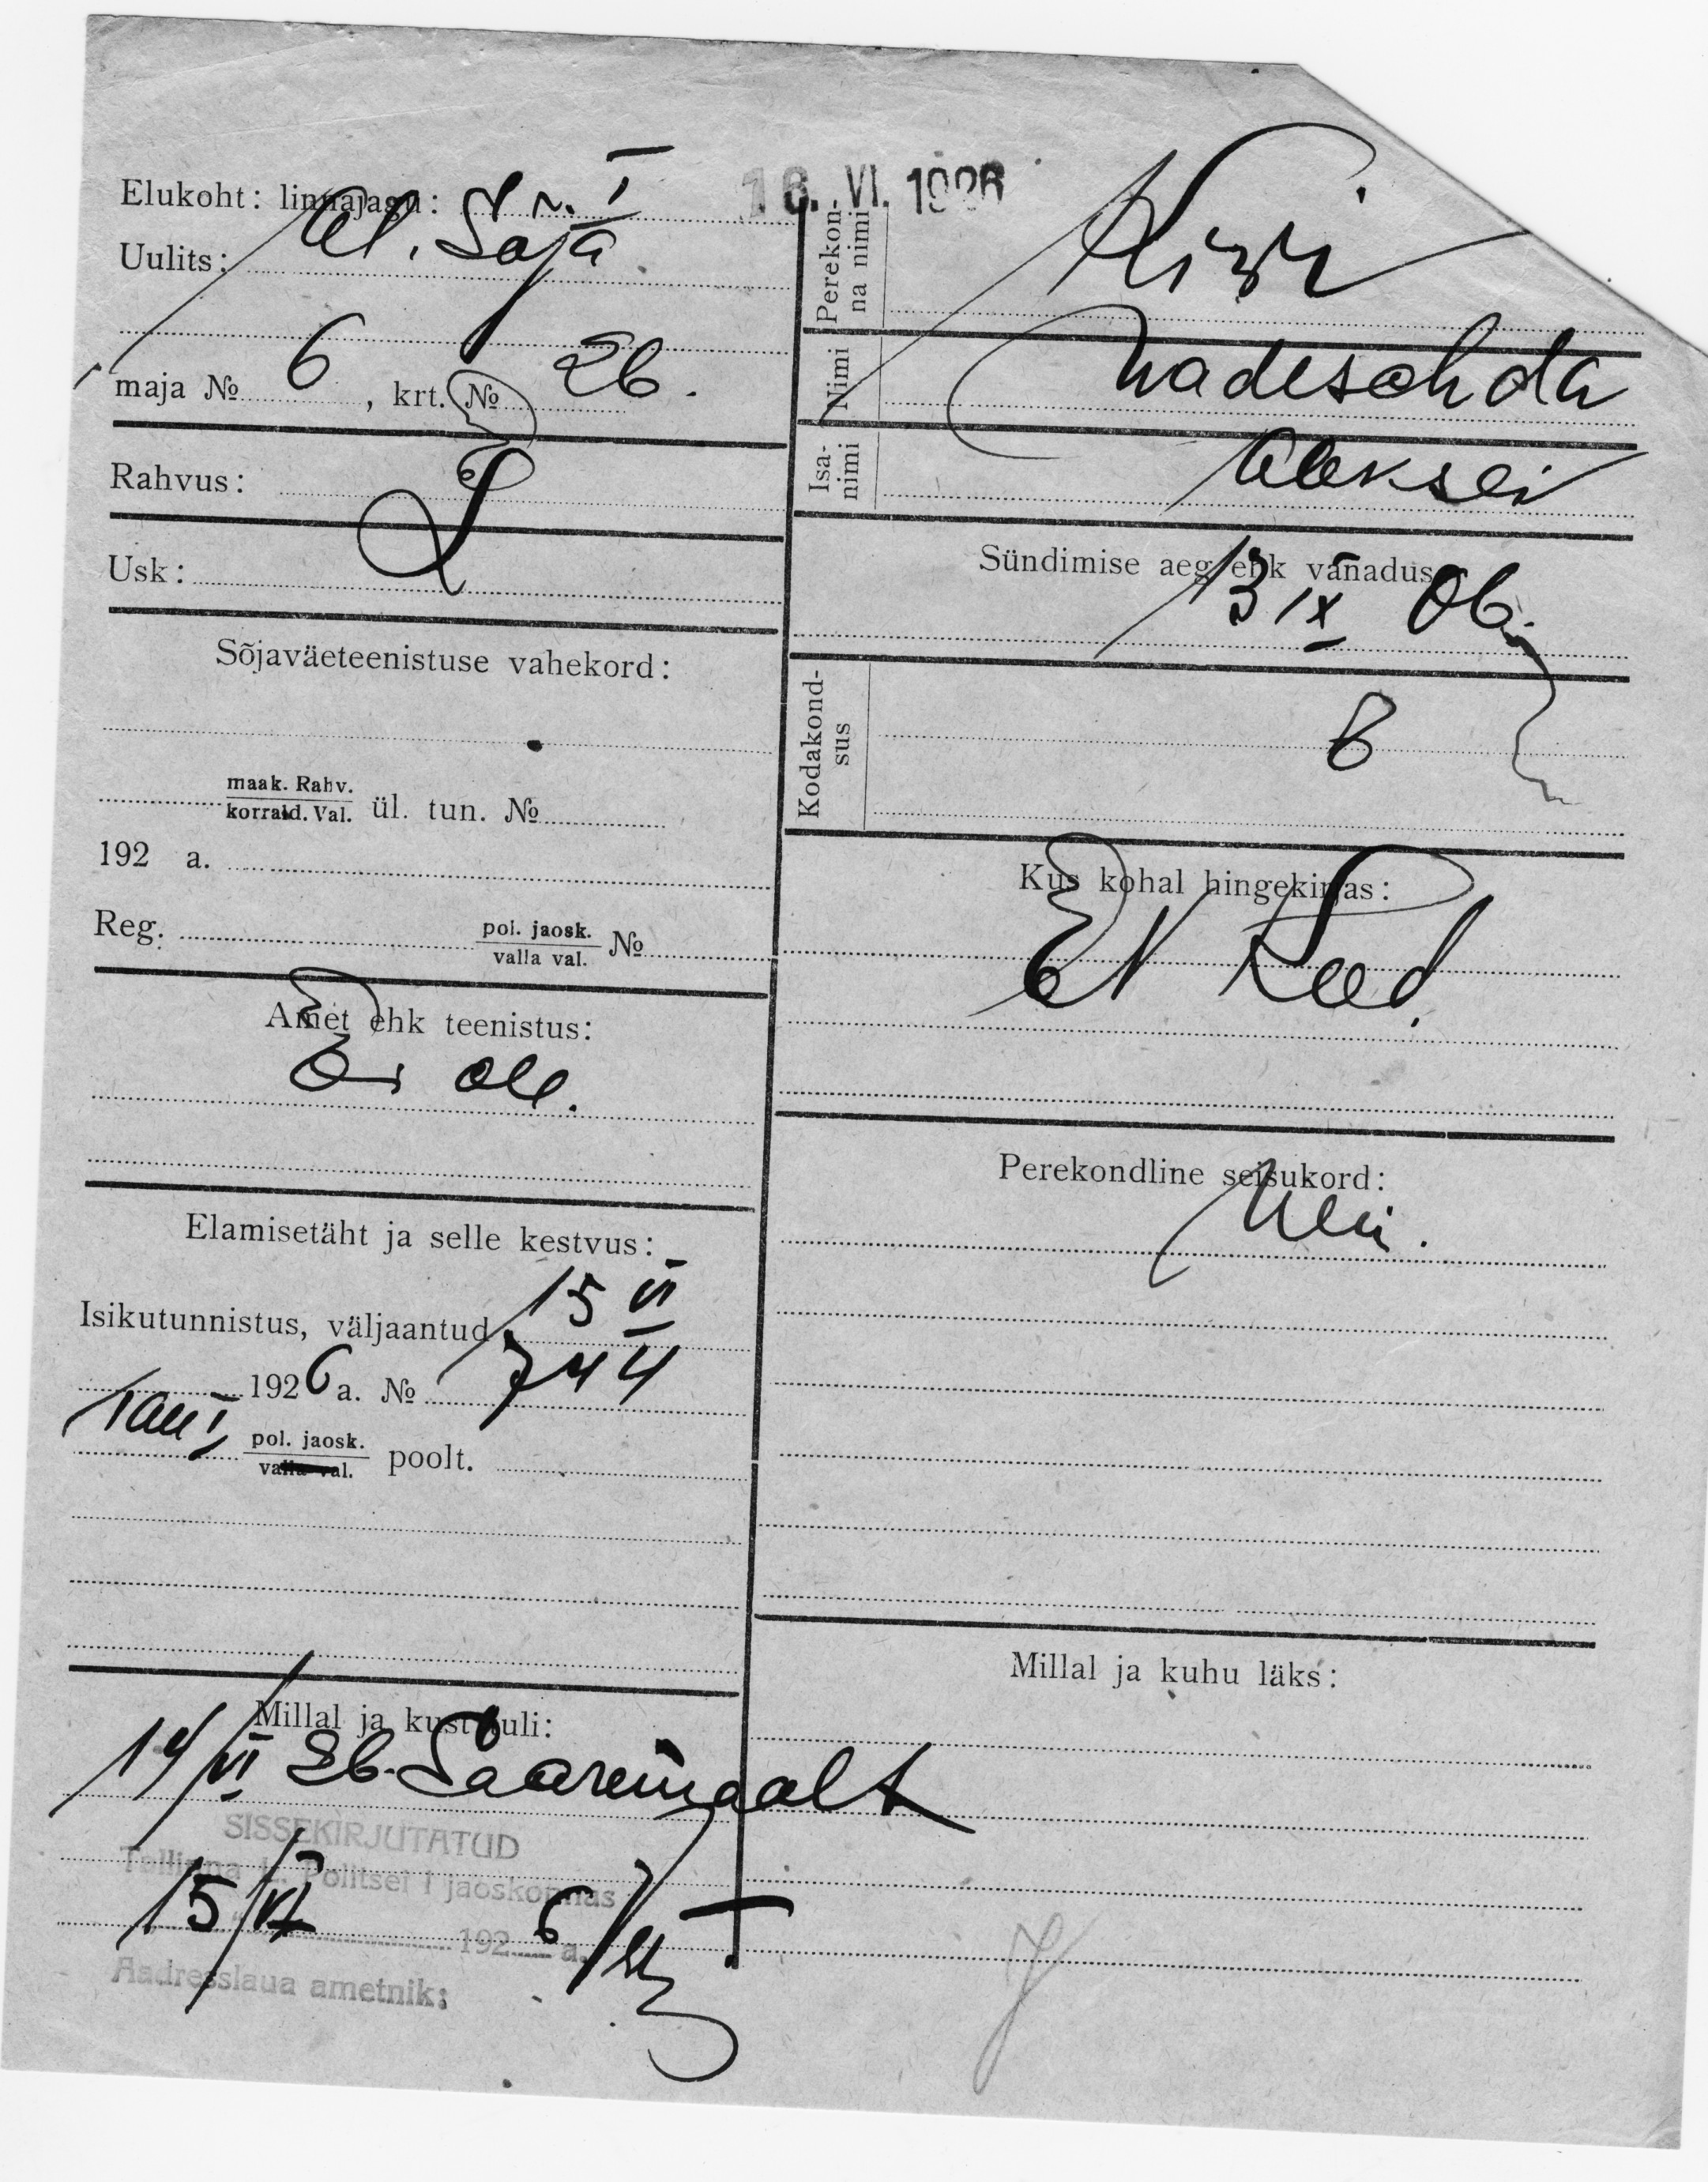 16. VI. 1926
Elukoht: linnajagu: I
Uulits: W. Sõja
maja № 6, krt. № 26.
Rahvus: E
Usk:
Sõjaväeteenistuse vahekord:
maak. Rahv.
korrald. Val. ül. tun. №
192 a.
Reg. pol. jaosk.
valla val. №
Amet ehk teenistus:
Ei ole.
Elamisetäht ja selle kestvus:
Isikutunnistus, väljaantud 15 VI
1926 a. № 744
Tall I pol. jaosk.
valla val. poolt.
Millal ja kust tuli:
14/VI 26. Saaremaalt
SISSEKIRJUTATUD
Tallinna L. Politsei I jaoskonnas
15/VI 1926 a.
Aadresslaua ametnik:
Perekonna nimi
Nimi Nadeschda
Isanimi Aleksei
Sündimise aeg ehk vanadus
13 IX 06.
Kodakondsus
Kus kohal hingekirjas:
Perekondline seisukord:
Millal ja kuhu läks: